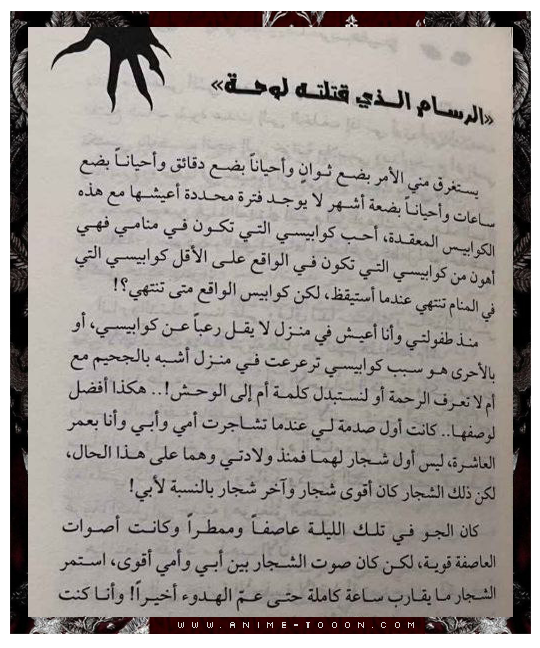 «الرسام الذي قتلته لوحة»
يستغرق مني الأمر بضع ثوانٍ وأحياناً بضع دقائق وأحياناً بضع
ساعات وأحياناً بضعة أشهر لا يوجد فترة محددة أعيشها مع هذه
الكوابيس المعقدة، أحب كوابيسي التي تكون في منامي فهي
أهون من كوابيسي التي تكون في الواقع على الأقل كوابيسي التي
في المنام تنتهي عندما أستيقظ، لكن كوابيس الواقع متى تنتهي؟!
منذ طفولتي وأنا أعيش في منزل لا يقل رعباً عن كوابيسي، أو
بالأحرى هو سبب كوابيسي ترعرعت في منزل أشبه بالجحيم مع
أم لا تعرف الرحمة أو لنستبدل كلمة أم إلى الوحش!.. هكذا أفضل
لوصفها.. كانت أول صدمة لي عندما تشاجرت أمي وأبي وأنا بعمر
العاشرة، ليس أول شجار لهما فمنذ ولادتي وهما على هذا الحال،
لكن ذلك الشجار كان أقوى شجار وآخر شجار بالنسبة لأبي!
كان الجو في تلك الليلة عاصفاً وممطراً وكانت أصوات
العاصفة قوية، لكن كان صوت الشجار بين أبي وأمي أقوى، استمر
الشجار ما يقارب ساعة كاملة حتى عمّ الهدوء أخيراً! وأنا كنت
WWW.ANIME-TOOON.COM